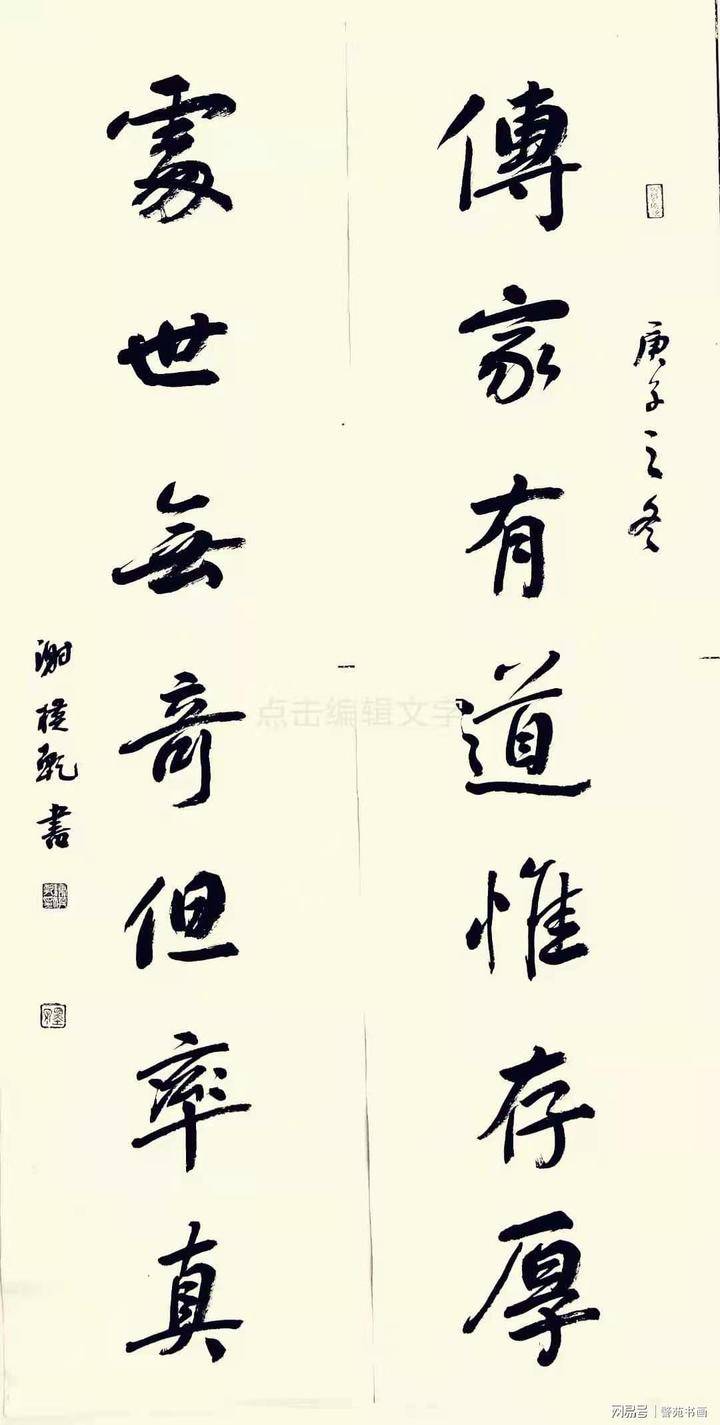 庚子之冬
傳家有道惟存厚
處世無奇但率真
書
点击编辑文字
网易号 | 警苑书画